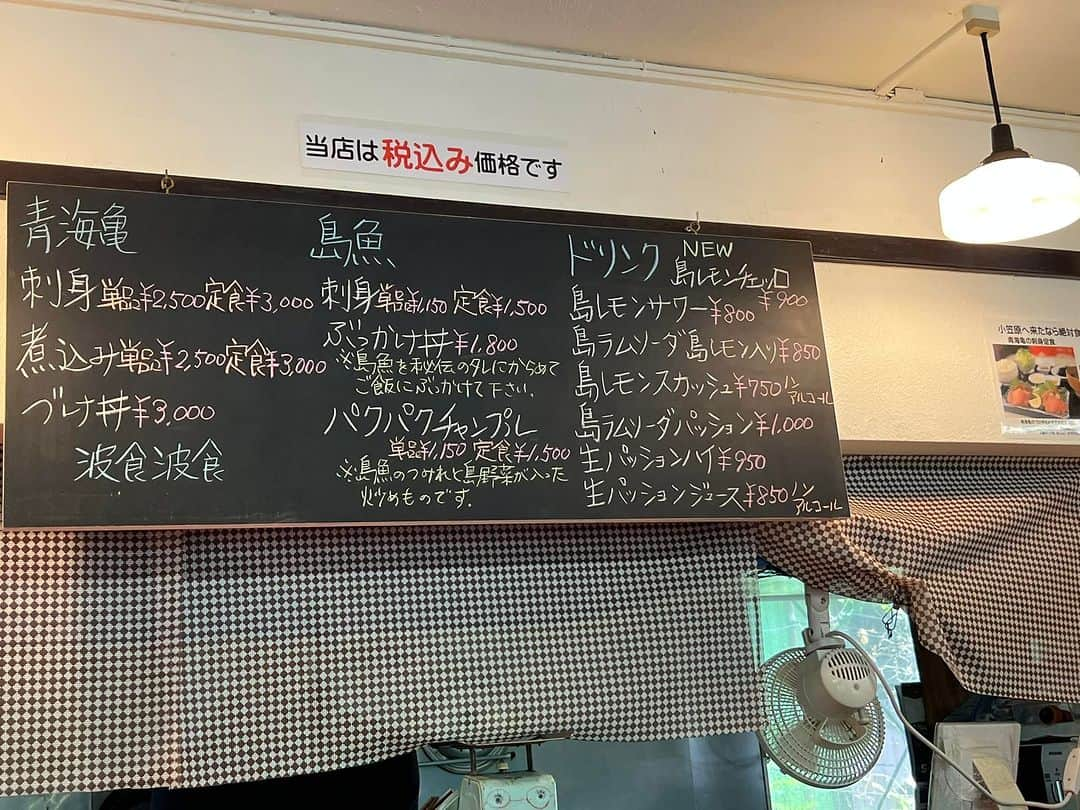 当店は税込み価格です
青海亀
刺身 単品¥2,500 定食¥3,000
煮込み 単品¥2,500 定食¥3,000
づけ丼 ¥3,000
波食波食
島魚
刺身 単品¥1,150 定食¥1,500
ぶっかけ丼 ¥1,800
※島魚を秘伝のタレにからめて
ご飯にぶっかけて下さい。
パクパクチャンプル
単品¥1,150 定食¥1,500
※島魚のつみれと島野菜が入った
炒めものです。
ドリンク
NEW
島レモンチェッロ
¥900
島レモンサワー ¥800
島ラムソーダ島レモン入り ¥850
島レモンスカッシュ ¥750 ノンアルコール
島ラムソーダパッション ¥1,000
生パッションハイ ¥950
生パッションジュース ¥850 ノンアルコール
小笠原へ来たなら絶対食
青海亀の刺身定食